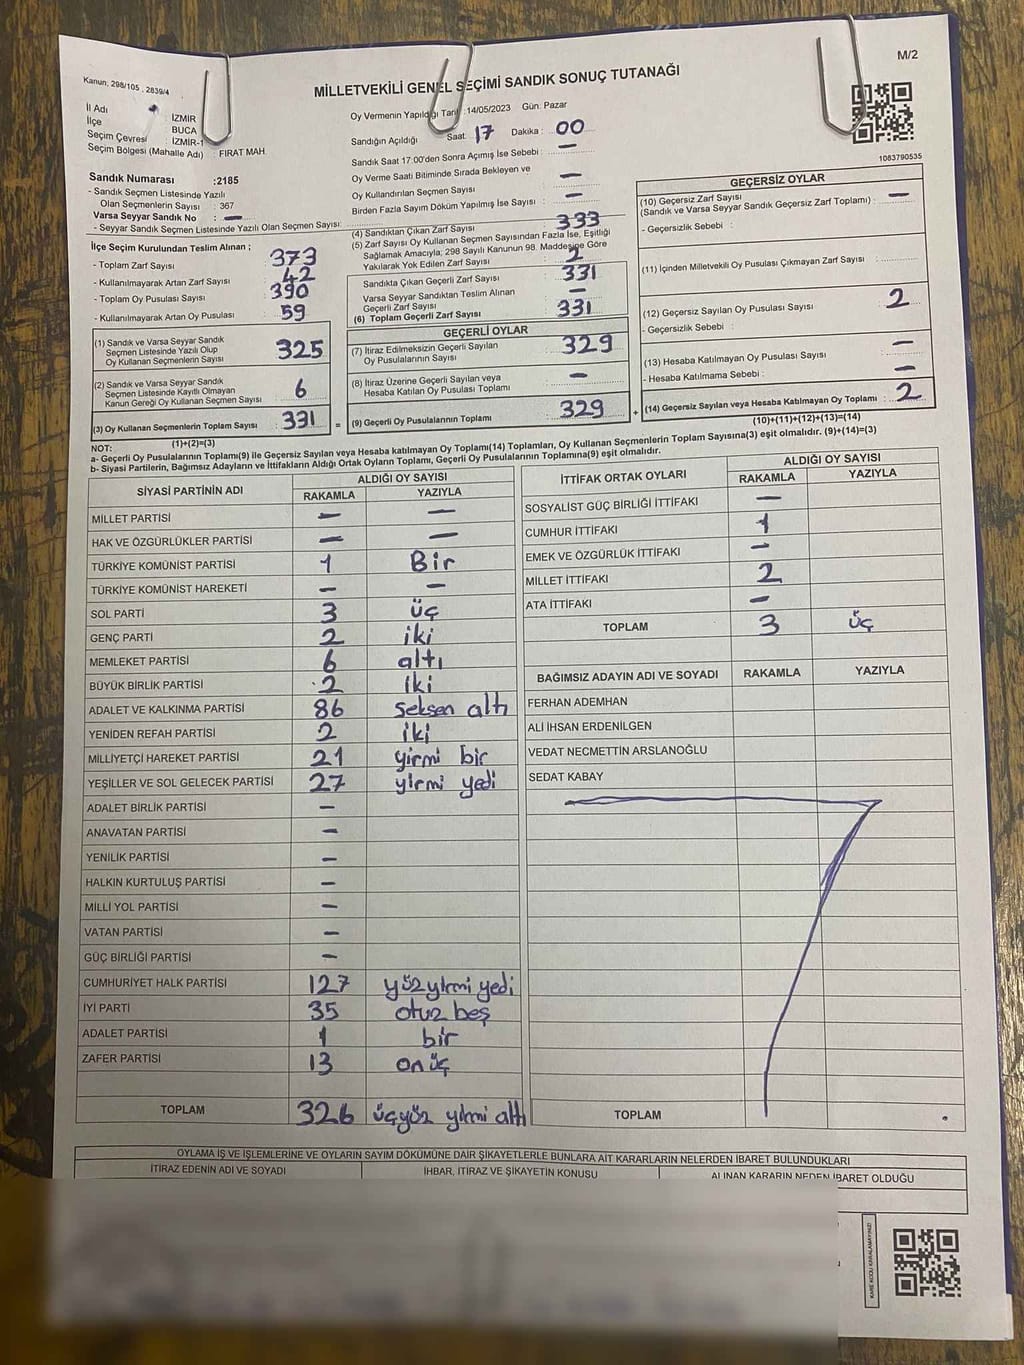 Kanun: 298/105 , 2839/4
M/2
MİLLETVEKİLİ GENEL SEÇİMİ SANDIK SONUÇ TUTANAĞI
İl Adı İZMİR
İlçe BUCA
Seçim Çevresi : İZMİR-1
Seçim Bölgesi (Mahalle Adı) : FIRAT MAH.
Oy Vermenin Yapıldığı Tarih : 14/05/2023 Gün: Pazar
Sandığın Açıldığı Saat: 17 Dakika : 00
Sandık Saat 17:00'den Sonra Açımış İse Sebebi : —
Oy Verme Saati Bitiminde Sırada Bekleyen ve
Oy Kullandırılan Seçmen Sayısı —
Birden Fazla Sayım Döküm Yapılmış İse Sayısı : —
1083790535
Sandık Numarası :2185
- Sandık Seçmen Listesinde Yazılı
Olan Seçmenlerin Sayısı : 367
Varsa Seyyar Sandık No : —
- Seyyar Sandık Seçmen Listesinde Yazılı Olan Seçmen Sayısı:
İlçe Seçim Kurulundan Teslim Alınan ;
- Toplam Zarf Sayısı 373
- Kullanılmayarak Artan Zarf Sayısı : 42
- Toplam Oy Pusulası Sayısı 390
- Kullanılmayarak Artan Oy Pusulası : 59
(1) Sandık ve Varsa Seyyar Sandık
Seçmen Listesinde Yazılı Olup
Oy Kullanan Seçmenlerin Sayısı 325
(2) Sandık ve Varsa Seyyar Sandık
Seçmen Listesinde Kayıtlı Olmayan
Kanun Gereği Oy Kullanan Seçmen Sayısı : 6
(3) Oy Kullanan Seçmenlerin Toplam Sayısı : 331 =
(1)+(2)=(3)
(4) Sandıktan Çıkan Zarf Sayısı : 333
(5) Zarf Sayısı Oy Kullanan Seçmen Sayısından Fazla İse, Eşitliği
Sağlamak Amacıyla; 298 Sayılı Kanunun 98. Maddesine Göre
Yakılarak Yok Edilen Zarf Sayısı : 2
Sandıkta Çıkan Geçerli Zarf Sayısı : 331
Varsa Seyyar Sandıktan Teslim Alınan
Geçerli Zarf Sayısı : —
(6) Toplam Geçerli Zarf Sayısı : 331
GEÇERLİ OYLAR
(7) İtiraz Edilmeksizin Geçerli Sayılan
Oy Pusulalarının Sayısı : 329
(8) İtiraz Üzerine Geçerli Sayılan veya
Hesaba Katılan Oy Pusulası Toplamı : —
(9) Geçerli Oy Pusulalarının Toplamı : 329 +
GEÇERSİZ OYLAR
(10) Geçersiz Zarf Sayısı
(Sandık ve Varsa Seyyar Sandık Geçersiz Zarf Toplamı) : —
- Geçersizlik Sebebi :
(11) İçinden Milletvekili Oy Pusulası Çıkmayan Zarf Sayısı :
(12) Geçersiz Sayılan Oy Pusulası Sayısı : 2
- Geçersizlik Sebebi :
(13) Hesaba Katılmayan Oy Pusulası Sayısı : —
- Hesaba Katılmama Sebebi : —
(14) Geçersiz Sayılan veya Hesaba Katılmayan Oy Toplamı : 2
(10)+(11)+(12)+(13)=(14)
NOT:
a- Geçerli Oy Pusulalarının Toplamı(9) ile Geçersiz Sayılan veya Hesaba katılmayan Oy Toplamı(14) Toplamları, Oy Kullanan Seçmenlerin Toplam Sayısına(3) eşit olmalıdır. (9)+(14)=(3)
b- Siyasi Partilerin, Bağımsız Adayların ve İttifakların Aldığı Ortak Oyların Toplamı, Geçerli Oy Pusulalarının Toplamına(9) eşit olmalıdır.
SİYASİ PARTİNİN ADI ALDIĞI OY SAYISI
RAKAMLA YAZIYLA
MİLLET PARTİSİ — —
HAK VE ÖZGÜRLÜKLER PARTİSİ — —
TÜRKİYE KOMÜNİST PARTİSİ 1 Bir
TÜRKİYE KOMÜNİST HAREKETİ — —
SOL PARTİ 3 üç
GENÇ PARTİ 2 iki
MEMLEKET PARTİSİ 6 altı
BÜYÜK BİRLİK PARTİSİ 2 iki
ADALET VE KALKINMA PARTİSİ 86 seksen altı
YENİDEN REFAH PARTİSİ 2 iki
MİLLİYETÇİ HAREKET PARTİSİ 21 yirmi bir
YEŞİLLER VE SOL GELECEK PARTİSİ 27 yirmi yedi
ADALET BİRLİK PARTİSİ —
ANAVATAN PARTİSİ —
YENİLİK PARTİSİ —
HALKIN KURTULUŞ PARTİSİ —
MİLLİ YOL PARTİSİ —
VATAN PARTİSİ —
GÜÇ BİRLİĞİ PARTİSİ —
CUMHURİYET HALK PARTİSİ 127 yüzyirmi yedi
İYİ PARTİ 35 otuz beş
ADALET PARTİSİ 1 bir
ZAFER PARTİSİ 13 on üç
TOPLAM 326 üçyüz yirmi altı
İTTİFAK ORTAK OYLARI ALDIĞI OY SAYISI
RAKAMLA YAZIYLA
SOSYALİST GÜÇ BİRLİĞİ İTTİFAKI —
CUMHUR İTTİFAKI 1
EMEK VE ÖZGÜRLÜK İTTİFAKI —
MİLLET İTTİFAKI 2
ATA İTTİFAKI —
TOPLAM 3 üç
BAĞIMSIZ ADAYIN ADI VE SOYADI RAKAMLA YAZIYLA
FERHAN ADEMHAN
ALİ İHSAN ERDENİLGEN
VEDAT NECMETTİN ARSLANOĞLU
SEDAT KABAY
TOPLAM
OYLAMA İŞ VE İŞLEMLERİNE VE OYLARIN SAYIM DÖKÜMÜNE DAİR ŞİKAYETLERLE BUNLARA AİT KARARLARIN NELERDEN İBARET BULUNDUKLARI
İTİRAZ EDENİN ADI VE SOYADI İHBAR, İTİRAZ VE ŞİKAYETİN KONUSU ALINAN KARARIN NEDEN İBARET OLDUĞU
KARE KODU KARALAMAYINIZ!